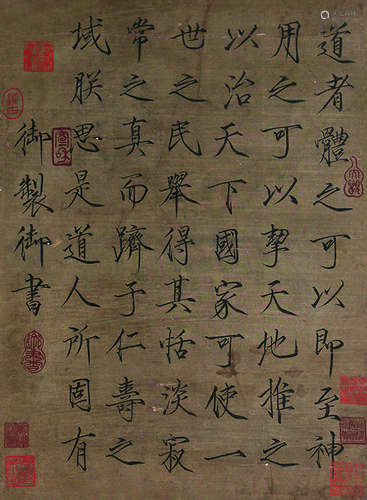 道者體之可以即至神
用之可以挈天地推之
以治天下國家可使一
世之民舉得其恬淡寂
常之真而躋于仁壽之
域朕思是道人所固有
御製御書